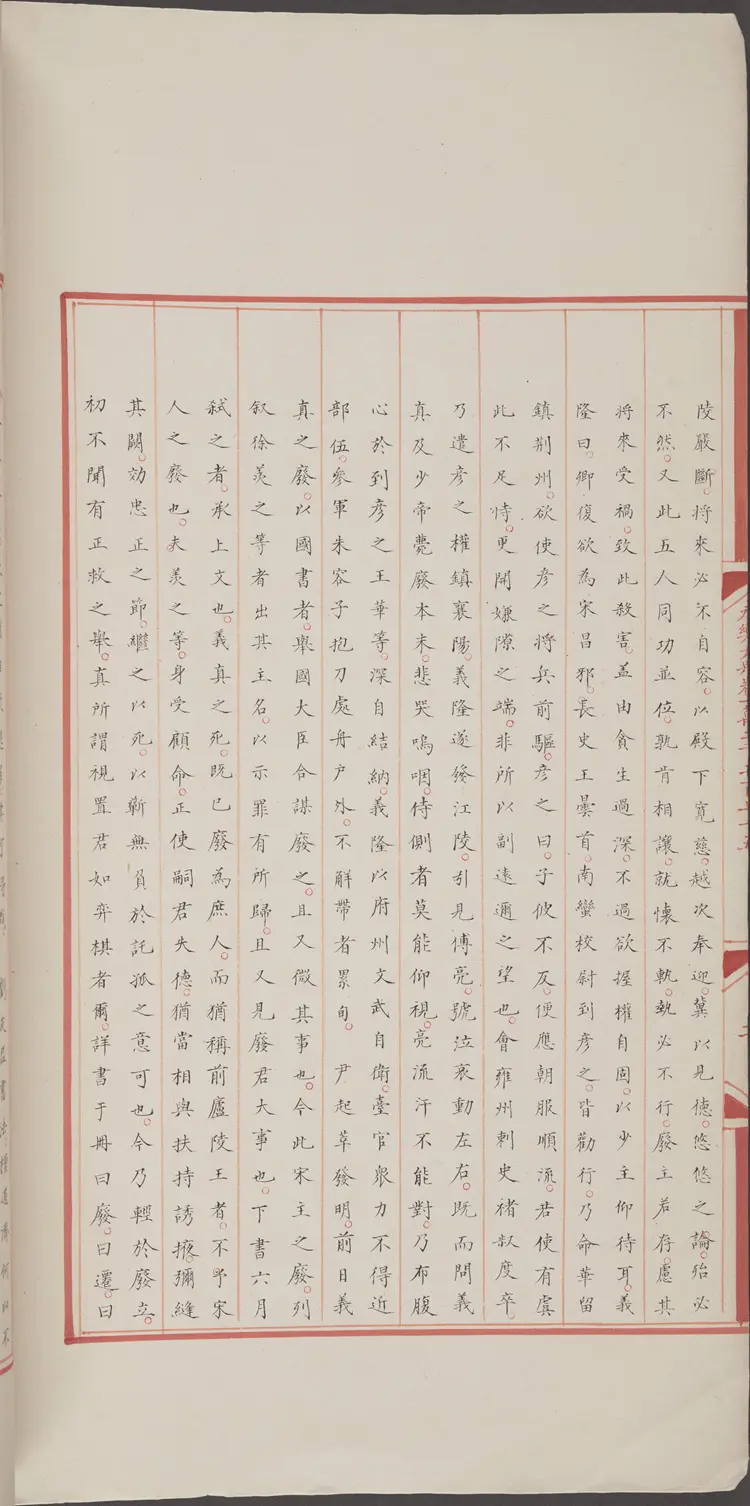 陵嚴斷。将來必不自容。以殿下寬慈。越次奉迎。冀以見德。悠悠之論。殆必
不然。又此五人同功並位。孰肯相讓。就懷不軌。埶必不行。廢主若存。慮其
將來受禍。致此殺害。盖由貪生過深。不過欲握權自固。以少主仰待耳。義
隆曰。卿復欲為宋昌邪。長史王曇首。南蠻校尉到彦之。皆勸行。乃命華留
鎮荆州。欲使彦之将兵前驅。彦之曰。子彼不反。便應朝服順流。若使有虞
此不足恃。更開嫌隙之端。非所以副遠邇之望也。會雍州刺史禇叔度卒。
乃遣彦之權鎮襄陽。義隆遂發江陵。引見傅亮。號泣哀動左右。既而問義
真及少帝薨廢本末。悲哭嗚咽。侍側者莫能仰視。亮流汗不能對。乃布腹
心於到彦之王華等。深自結納。義隆以府州文武自衛。臺官衆力不得近
部伍。參軍朱容子抱刀處舟户外。不解帶者累旬。尹起莘發明。前日義
真之廢。以國書者。舉國大臣合謀廢之。且又微其事也。今此宋主之廢。列
叙徐羙之等者出其主名。以示罪有所歸。且又見廢君大事也。下書六月
弒之者。承上文也。義真之死。既已廢為庶人。而猶稱前廬陵王者。不予宋
人之廢也。夫羙之等。身受顧命。正使嗣君失德。猶當相與扶持誘掖。彌縫
其闕。効忠正之節。繼之以死。以蘄無負於託孤之意可也。今乃輕於廢立。
初不聞有正救之舉。真所謂視置君如弈棋者爾。詳書于冊曰廢。曰遷。曰